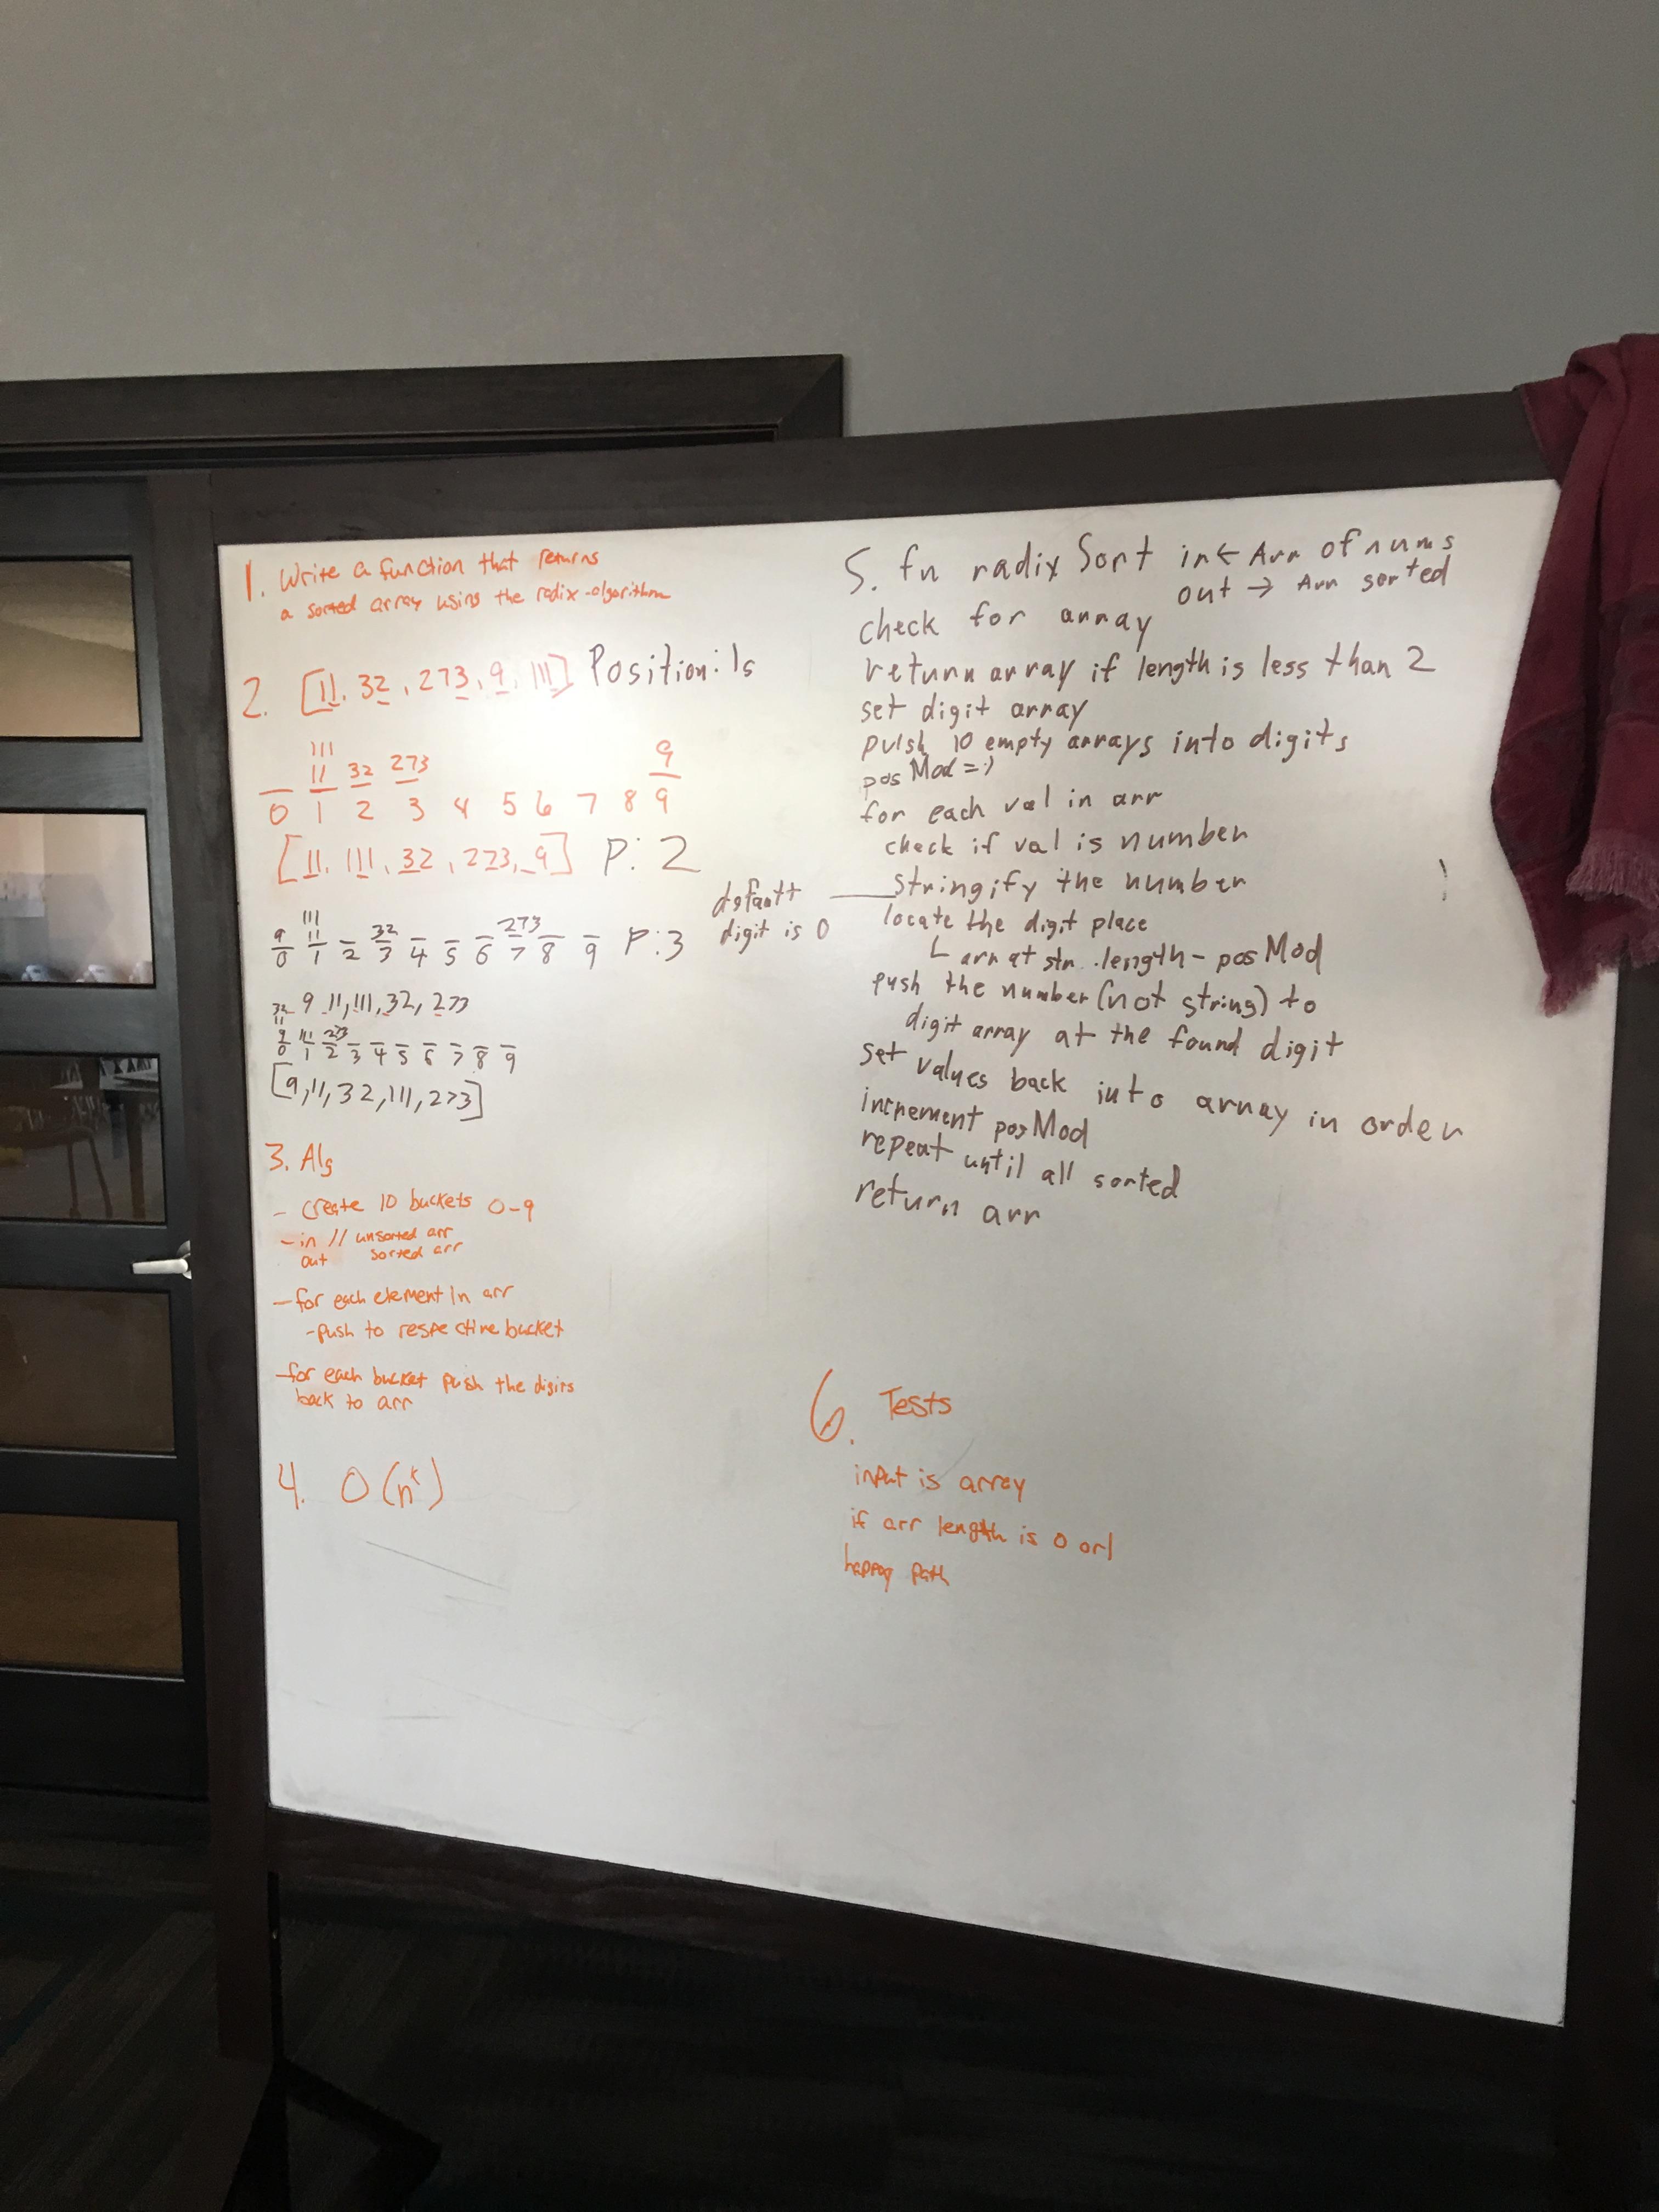 1. Write a function that returns
a sorted array using the radix-algorithm
2. [11, 32, 273, 9, 111] Position: 1s
111 9
11 32 273
0 1 2 3 4 5 6 7 8 9
[11, 111, 32, 273, 9] P: 2
111
9 11 32 273
0 1 2 3 4 5 6 7 8 9 P:3
9 11, 111, 32, 273
32
11
9 111 273
0 1 2 3 4 5 6 7 8 9
[9, 11, 32, 111, 273]
3. Alg
- create 10 buckets 0-9
- in // unsorted arr
out sorted arr
- for each element in arr
- push to respective bucket
- for each bucket push the digits
back to arr
4. O(n^k)
5. fn radix Sort in ← Arr of nums
out → Arr sorted
check for array
return array if length is less than 2
set digit array
push 10 empty arrays into digits
pos Mod =
for each val in arr
check if val is number
stringify the number
default
digit is 0
locate the digit place
└ arr at str. length - pos Mod
push the number (not string) to
digit array at the found digit
set values back into array in order
increment pos Mod
repeat until all sorted
return arr
6. Tests
input is array
if arr length is 0 or 1
happy path